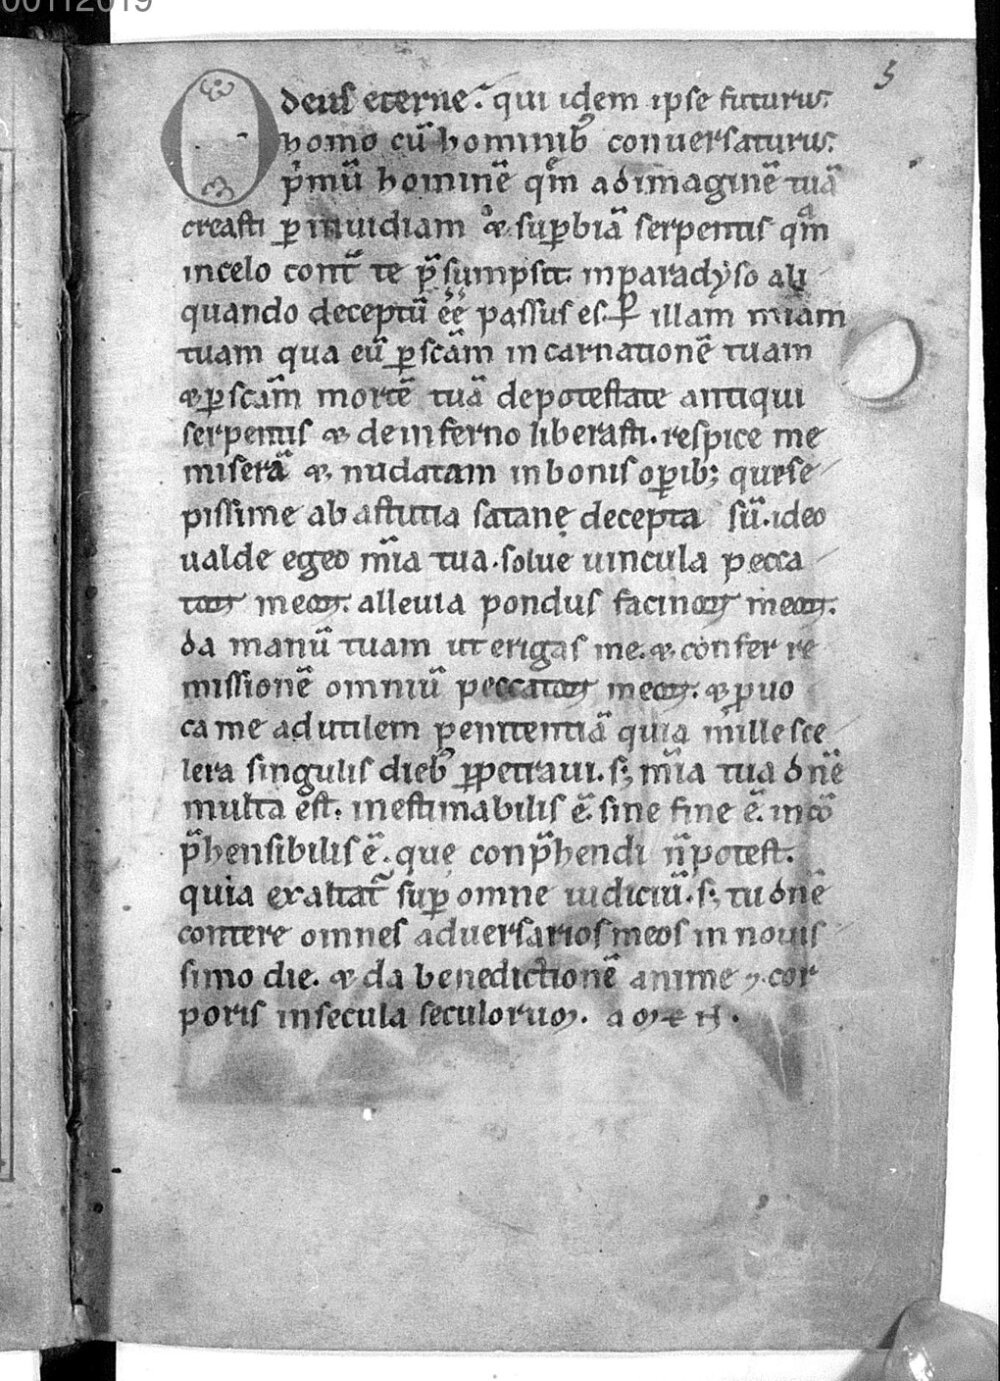 00112019
5
O deus eterne. qui idem ipse futurus.
homo cū hominibꝰ conuersaturus.
pͥmū hominē qm̄ adimaginē tuā
creasti ꝑ inuidiam & suꝑbiā serpentis qm̄
incelo cont̄ te p̄sumpsit. inparadyso ali
quando deceptū ēē passus es. ꝑ illam mīam
tuam qua eū ꝑ scām incarnationē tuam
& ꝑ scām mortē tuā depotestate antiqui
serpentis & deinferno liberasti. respice me
miserā & nudatam inbonis oꝑib; que se
pissime ab astutia satanę decepta sū. ideo
ualde egeo mīa tua. solue uincula pecca
toꝝ meoꝝ. alleuia pondus facinoꝝ meoꝝ.
da manū tuam ut erigas me. & confer re
missionē omniū peccatoꝝ meoꝝ. & ꝓuo
ca me ad utilem penitentiā quia mille sce
lera singulis diebꝰ ꝑpetraui. s; mīa tua dnē
multa est. inestimabilis ē. sine fine ē. incō
p̄hensibilis ē. que conp̄hendi n̄ potest.
quia exaltat̄ suꝑ omne iudiciū. s; tu dnē
contere omnes aduersarios meos in nouis
simo die. & da benedictionē anime ⁊ cor
poris insecula seculorum. amen.